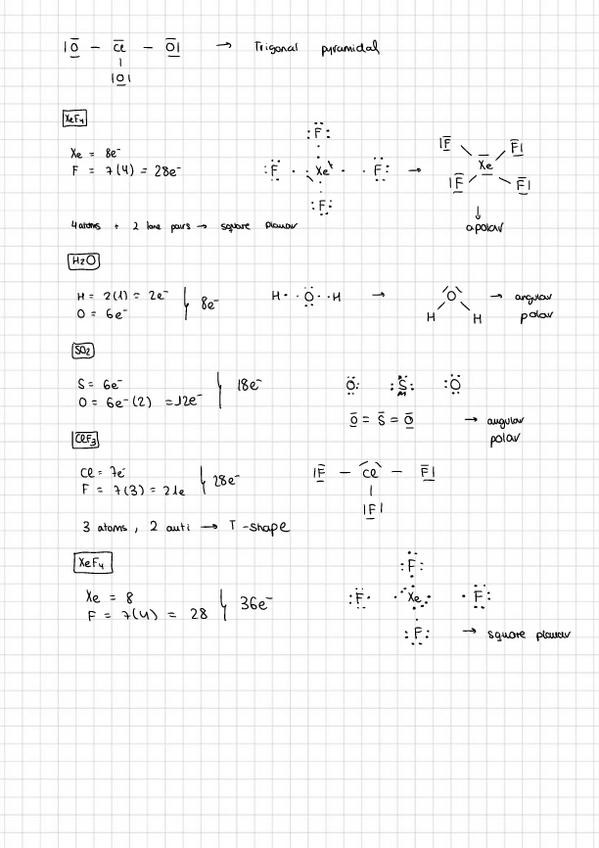 |O̅ − C̅l̅ − O̅| → Trigonal pyramidal
|
|O̲|
XeF₄
Xe = 8e⁻
F = 7(4) = 28e⁻
:F̈: 
:F̈ · Xe · F̈: →
:F̤:
|F̅ F̅|
X̅e̲
|F̲ F̲|
4 atoms + 2 lone pairs → square planar
↓
apolar
H₂O
H = 2(1) = 2e⁻
O = 6e⁻
8e⁻
H · · Ö · · H →
O → angular
H H polar
SO₂
S = 6e⁻
O = 6e⁻(2) = 12e⁻
18e⁻
Ö: :S̈: :Ö
O̲̅ = S̅ = O̲̅ → angular
polar
ClF₃
Cl = 7e⁻
F = 7(3) = 21e
28e⁻
|F̲̅ − Cl − F̲̅|
|
|F̲|
3 atoms, 2 → T-shape
XeF₄
Xe = 8
F = 7(4) = 28
36e⁻
:F̈:
:F̈· Xe · F̈:
:F̈: → square planar